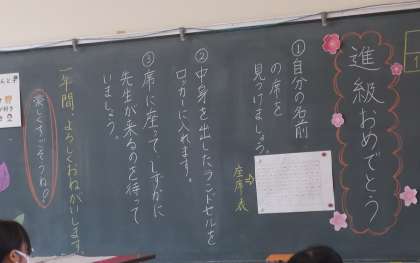 進級おめでとう
①自分の名前
の席を
見つけましょう。
座席表
②中身を出したランドセルを
ロッカーに入れます。
③席に座って、しずかに
先生が来るのを待って
いましょう。
一年間、よろしくおねがいします。
楽しくすごそうね！